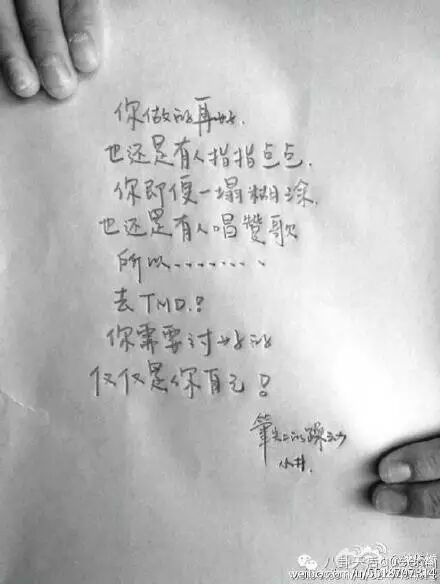 你做的再好.
也还是有人指指点点.
你即便一塌糊涂.
也还是有人唱赞歌
所以………
去TMD.!
你需要讨好的
仅仅是你自己!
筆尖上的
小井.
八卦天后